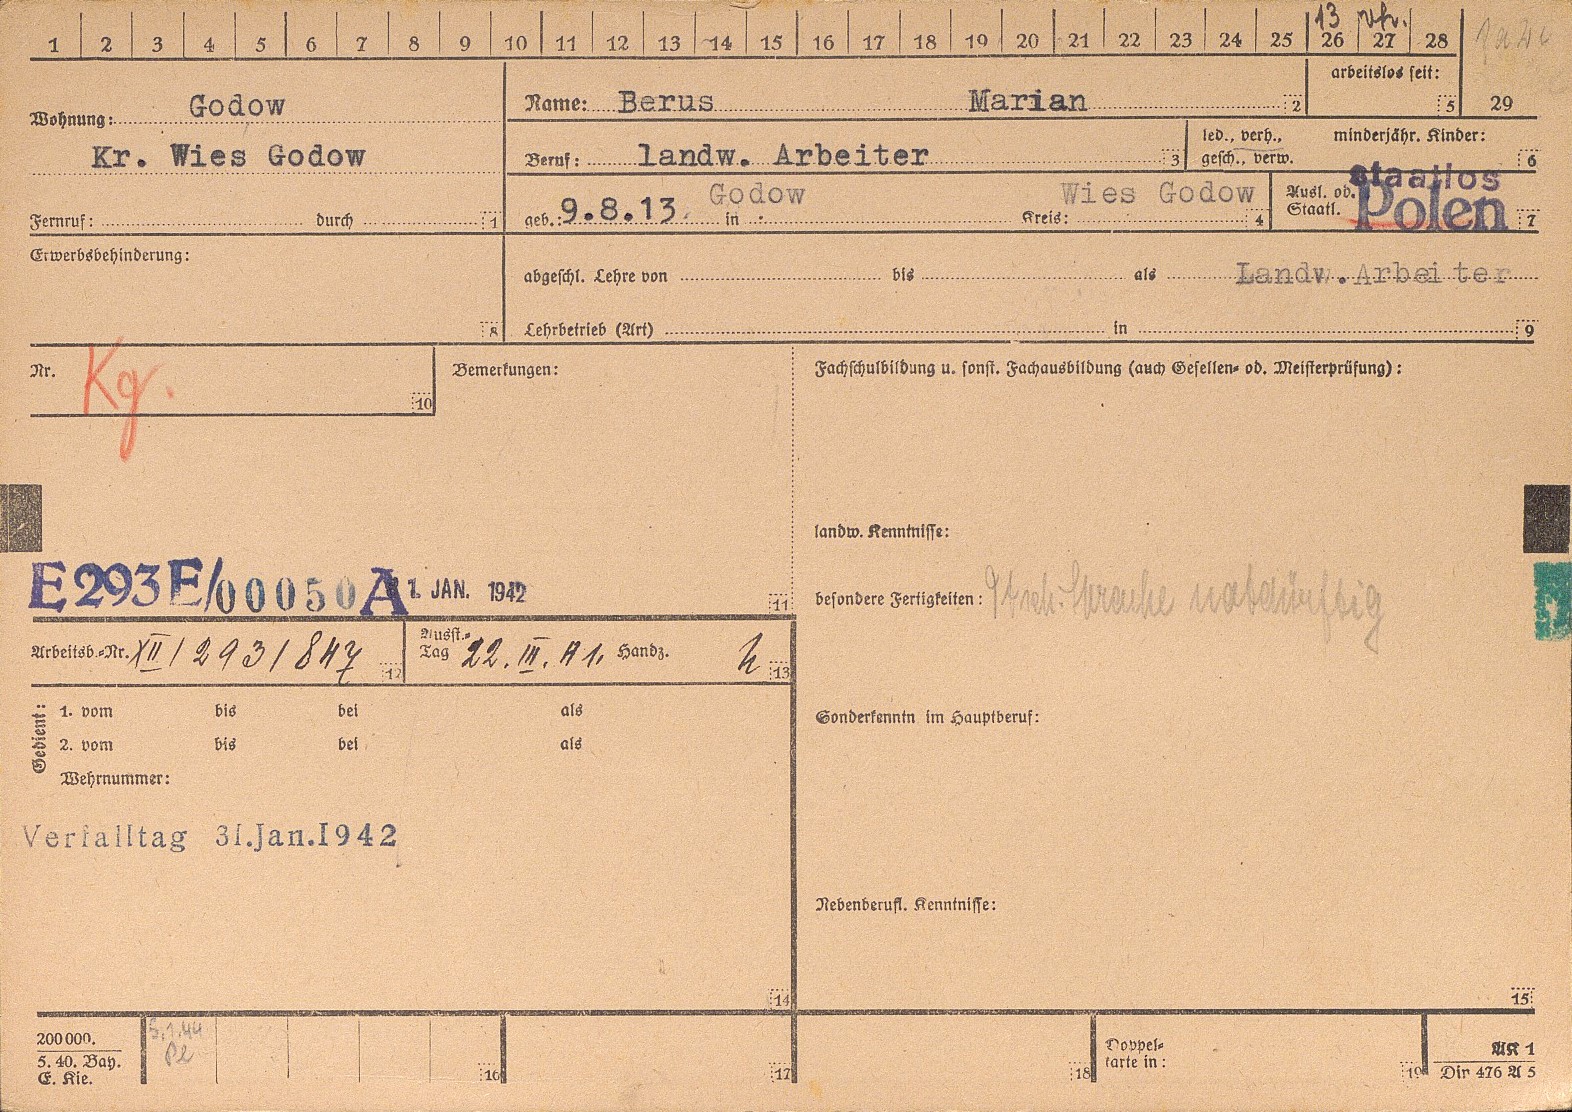 13 vh.
1 2 3 4 5 6 7 8 9 10 11 12 13 14 15 16 17 18 19 20 21 22 23 24 25 26 27 28
Wohnung: Godow
Kr. Wies Godow
Fernruf: durch 1
Name: Berus Marian 2
arbeitslos seit: 5
29
Beruf: landw. Arbeiter 3
led., verh., gesch., verw.
minderjähr. Kinder: 6
geb.: 9.8.13. in Godow Kreis: Wies Godow 4
Ausl. od. Staatl. staatlos Polen 7
Erwerbsbehinderung: 8
abgeschl. Lehre von bis als Landw. Arbeiter
Lehrbetrieb (Art) in 9
Nr. Kg. 10
Bemerkungen:
Fachschulbildung u. sonst. Fachausbildung (auch Gesellen- od. Meisterprüfung):
landw. Kenntnisse:
E293E/00050A 1. JAN. 1942 11
besondere Fertigkeiten: Dtsch. Sprache notdürftig
Arbeitsb.-Nr. XII/293/847 12
Ausst.-Tag 22. III. 41. Handz. 13
Gedient:
1. vom bis bei als
2. vom bis bei als
Wehrnummer:
Sonderkenntn im Hauptberuf:
Verfalltag 31.Jan.1942
Nebenberufl. Kenntnisse:
14
15
200 000.
5. 40. Bay.
E. Kie.
5.1.44
16
17
18
Doppel-
karte in:
19
AK 1
Dir 476 A 5